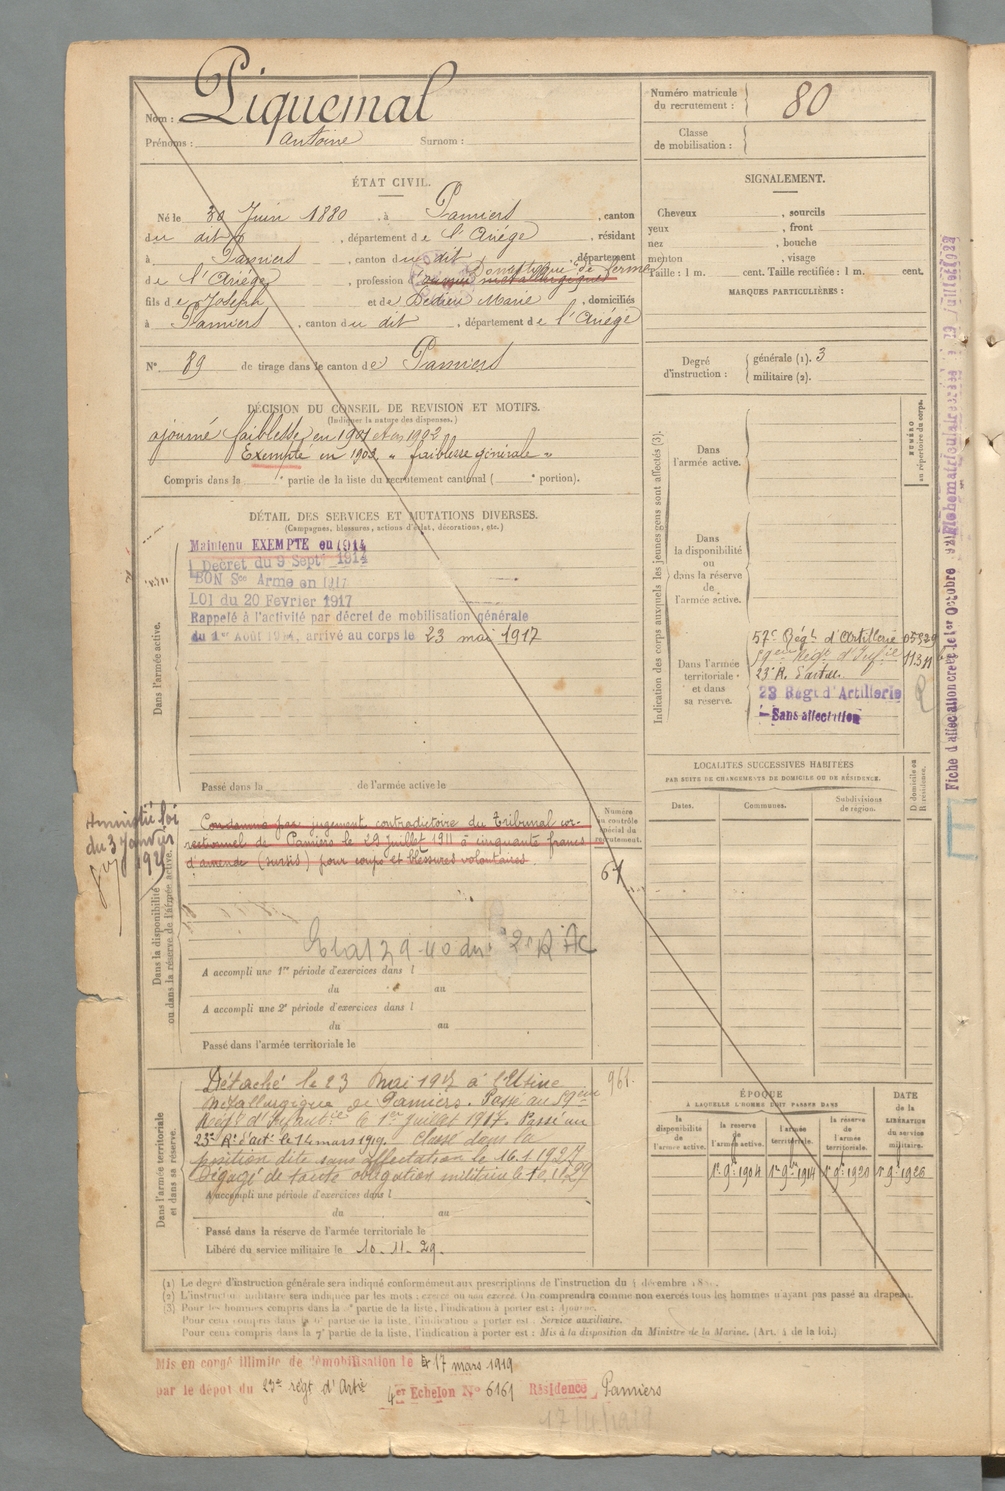 Nom : Piquemal
Prénoms : Antoine Surnom :
Numéro matricule du recrutement : 80
Classe de mobilisation :
ÉTAT CIVIL.
Né le 30 Juin 1880, à Pamiers, canton
du dit, département de l'Ariége, résidant
à Pamiers, canton du dit, département
de l'Ariége, profession Domestique de ferme
usine métallurgique
fils de Joseph et de Dedieu Marie, domiciliés
à Pamiers, canton du dit, département de l'Ariége
N° 89 de tirage dans le canton de Pamiers
SIGNALEMENT.
Cheveux , sourcils
yeux , front
nez , bouche
menton , visage
Taille : 1 m. cent. Taille rectifiée : 1 m. cent.
MARQUES PARTICULIÈRES :
Degré d'instruction : générale (1). 3
militaire (2).
DÉCISION DU CONSEIL DE REVISION ET MOTIFS.
(Indiquer la nature des dispenses.)
ajourné faiblesse en 1901 et en 1902
Exempté en 1903 " faiblesse générale "
Compris dans la ° partie de la liste du recrutement cantonal ( ° portion).
DÉTAIL DES SERVICES ET MUTATIONS DIVERSES.
(Campagnes, blessures, actions d'éclat, décorations, etc.)
Dans l'armée active.
Maintenu EXEMPTÉ en 1914
Décret du 9 Septe 1914
BON Sce Armé en 1917
LOI du 20 Février 1917
Rappelé à l'activité par décret de mobilisation générale
du 1er Août 1914, arrivé au corps le 23 mai 1917
Passé dans la de l'armée active le
Indication des corps auxquels les jeunes gens sont affectés (3).
NUMÉRO au répertoire du corps.
Dans l'armée active.
Dans la disponibilité ou dans la réserve de l'armée active.
Dans l'armée territoriale et dans sa réserve.
57e Régt d'Artillerie 05329
59eme Régt d'Infie 11311
23e R. d'artie
23 Régt d'Artillerie
Sans affectation
Fiche d'affectation créée le 1er Octobre
Fiche matriculaire créée
LOCALITÉS SUCCESSIVES HABITÉES
PAR SUITE DE CHANGEMENTS DE DOMICILE OU DE RÉSIDENCE.
Dates. Communes. Subdivisions de région. D. domicile ou R. résidence.
E
Amnistié loi
du 3 Janvier
1925
Dans la disponibilité ou dans la réserve de l'armée active.
Numéro au contrôle spécial du recrutement.
Condamné par jugement contradictoire du tribunal cor-
rectionnel de Pamiers le 29 Juillet 1911 à cinquante francs
d'amende (sursis) pour coups et blessures volontaires.
A accompli une 1re période d'exercices dans l
du au
A accompli une 2e période d'exercices dans l
du au
Passé dans l'armée territoriale le
Dans l'armée territoriale et dans sa réserve.
961.
Détaché le 23 Mai 1917 à l'Usine
Métallurgique de Pamiers. Passé au 59eme
Régt d'Infanterie le 1er Juillet 1917. Passé au
23e Rt d'art. le 14 mars 1919. Classé dans la
position dite sans affectation le 16.1.1927
Dégagé de toute obligation militaire le 10.11.29
A accompli une période d'exercices dans l
du au
Passé dans la réserve de l'armée territoriale le
Libéré du service militaire le 10.11.29.
ÉPOQUE
À LAQUELLE L'HOMME DOIT PASSER DANS
DATE de la LIBÉRATION du service militaire.
la disponibilité de l'armée active. la réserve de l'armée active. l'armée territoriale. la réserve de l'armée territoriale.
1er 9bre 1904 1er 9bre 1914 1er 9bre 1920 1er 9bre 1926
(1) Le degré d'instruction générale sera indiqué conformément aux prescriptions de l'instruction du 4 décembre
(2) L'instruction militaire sera indiquée par les mots : exercé ou non exercé. On comprendra comme non exercés tous les hommes n'ayant pas passé au drapeau.
(3) Pour les hommes compris dans la 2e partie de la liste, l'indication à porter est : Ajourné.
Pour ceux compris dans la 6e partie de la liste, l'indication à porter est : Service auxiliaire.
Pour ceux compris dans la 7e partie de la liste, l'indication à porter est : Mis à la disposition du Ministre de la Marine. (Art. 4 de la loi.)
Mis en congé illimité de démobilisation le 17 mars 1919
par le dépôt du 23e régt d'Artie 4er Echelon N° 6161 Résidence Pamiers